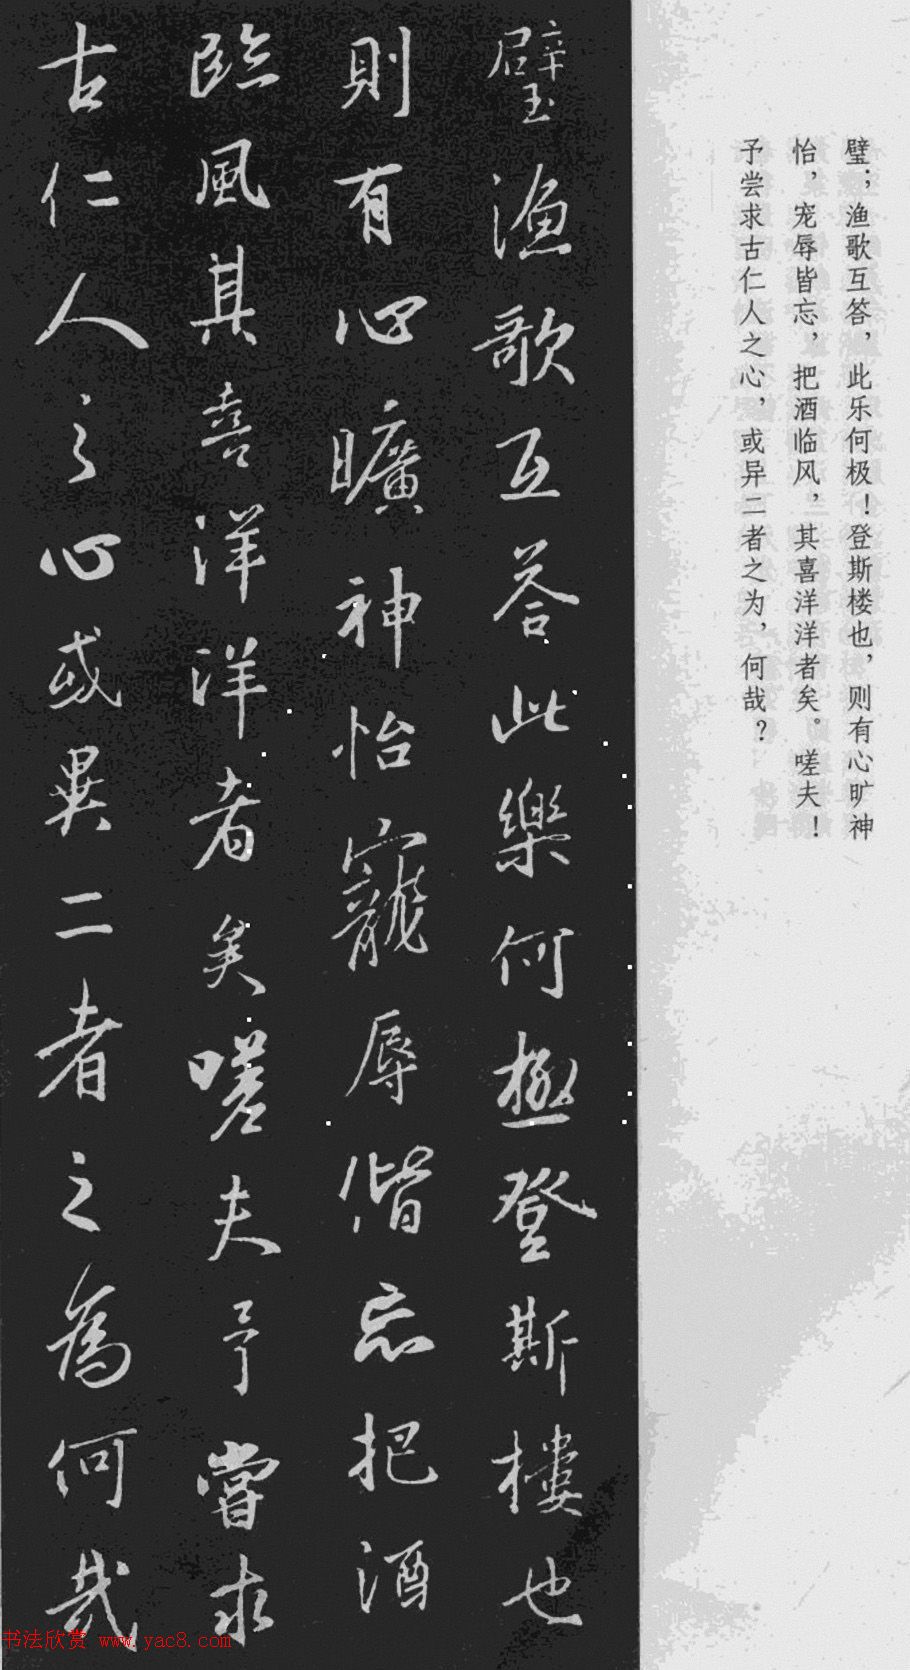 璧；渔歌互答，此乐何极！登斯楼也，则有心旷神
怡，宠辱皆忘，把酒临风，其喜洋洋者矣。嗟夫！
予尝求古仁人之心，或异二者之为，何哉？
璧漁歌互荅此樂何極登斯樓也
則有心曠神怡寵辱偕忘把酒
臨風其喜洋洋者矣嗟夫予嘗求
古仁人之心或異二者之為何哉
书法欣赏 www.yac8.com